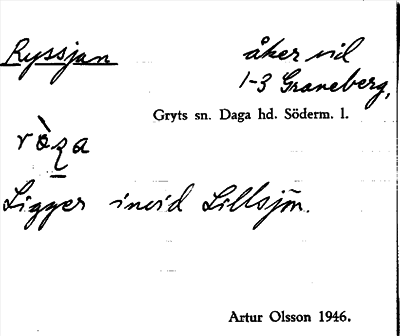 Ryssjan
åker vid
1-3 Graneberg,
Gryts sn. Daga hd. Söderm. l.
Ligger invid Lillsjön.
Artur Olsson 1946.